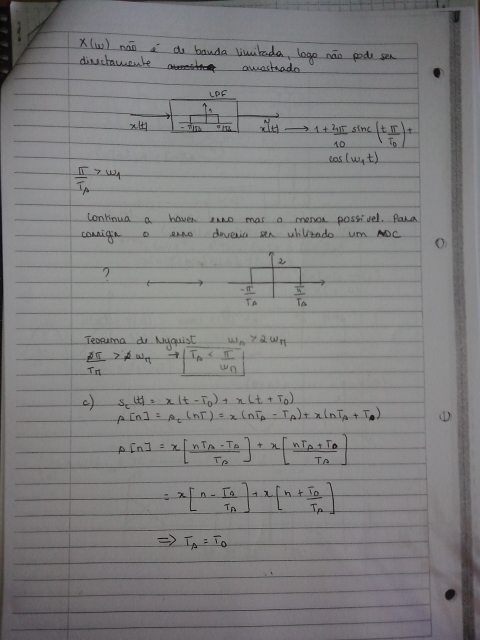 X(ω) não é de banda limitada, logo não pode ser
directamente amostrado
LPF
1
x(t)
-π/TA π/TA
x̃(t) → 1 + 2π/10 sinc(t π/T0) +
cos(ω1 t)
π/TA > ω1
Continua a haver erro mas o menor possível. Para
corrigir o erro deveria ser utilizado um ADC
?
2
-π/TA π/TA
Teorema de Nyquist ωA > 2ωM
2π/TA > 2ωM → TA < π/ωM
c) sc(t) = x(t - T0) + x(t + T0)
s[n] = sc(nT) = x(nTA - T0) + x(nTA + T0)
s[n] = x[(nTA - T0)/TA] + x[(nTA + T0)/TA]
= x[n - T0/TA] + x[n + T0/TA]
⇒ TA = T0